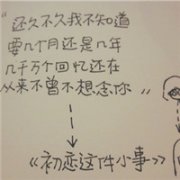 “还久不久我不知道
要几个月还是几年
几千万个回忆还在
从来不曾不想念你”
《初恋这件小事》